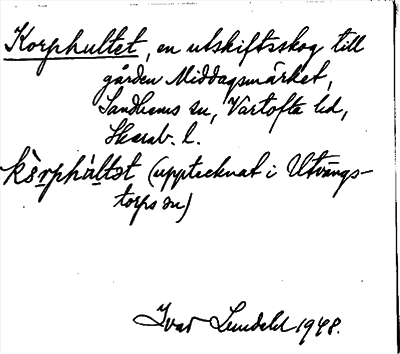 Korphultet, en utskiftsskog till
gården Middagsmärket,
Sandhems sn, Vartofta hd,
Skarab. l.
kèrphàltət (upptecknat i Utvängs-
torps sn)
Ivar Lundahl 1948.